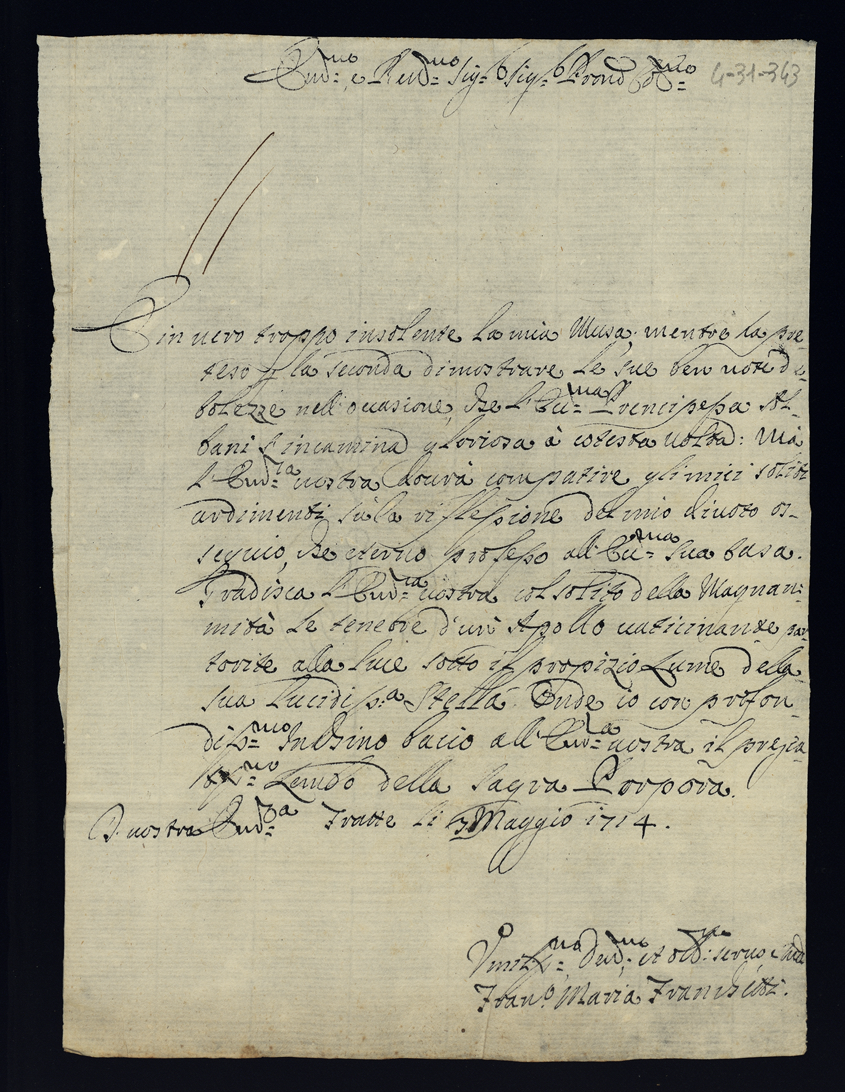 Em.mo e Reu.mo Sig.r Sig.r Prone Col.mo 4-31-343
E in uero troppo insolente la mia Musa, mentre la pre-
teso p la seconda dimostrare le sue ben note de-
bolezze nell'occasione, che l'Ecc.ma Prencipessa Al-
bani s'incamina gloriosa à cotesta uolta: Mà
l'Em.za uostra dourà compatire gli miei soliti
ardimenti sù la riflessione del mio diuoto os-
sequio, che eterno professo all'Ecc.ma sua casa.
Gradisca l'Em.za uostra col solito della Magnani-
mità le tenebre d'un Apollo uaticinante par-
torite alla luce sotto il propizio Lume della
sua lucidiss.a Stella. Onde io con profon-
diss.mo Inchino bacio all'Em.za uostra il pregia-
tiss.mo Lembo della Sagra Porpora.
D. uostra Em.za Fratte li Maggio 1714.
Vmiliss.mo Deu.mo et obb.mo seruo
Fran.co Maria Franchetti.